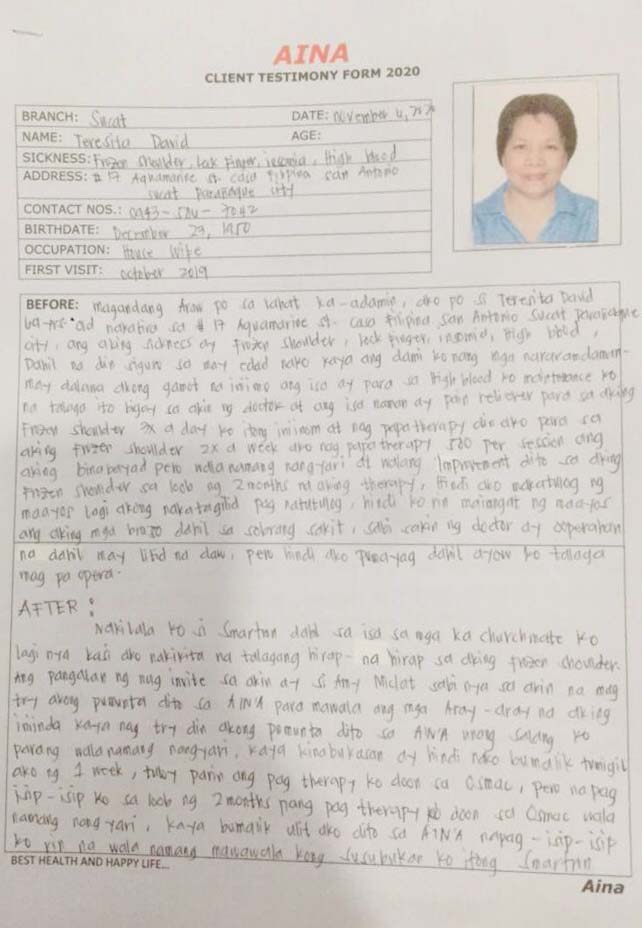 AINA
CLIENT TESTIMONY FORM 2020
BRANCH: Sucat DATE: November 4, 2020
NAME: Teresita David AGE:
SICKNESS: Frozen shoulder, Lock Finger, insomia, High blood
ADDRESS: # 17 Aquamarine st. casa Filipina san Antonio
sucat Parañaque city
CONTACT NOS.: 0943-584-7042
BIRTHDATE: December 29, 1950
OCCUPATION: House Wife
FIRST VISIT: october 2019
BEFORE: magandang Araw po sa lahat ka-adamin, ako po si Teresita David
nakatira sa # 17 Aquamarine st. casa Filipina, san Antonio sucat Parañaque
city, ang aking sickness ay frozen shoulder, lock finger, insomia, High blood,
Dahil na din siguro sa may edad nako kaya ang dami ko nang mga nararamdaman
may dalawa akong gamot na iniinom ang isa ay para sa High blood ko maintenance ko
na talaga ito bigay sa akin ng doctor at ang isa naman ay pain reliever para sa aking
Frozen shoulder 2x a day ko itong iniinom at nag papa therapy din ako para sa
aking frozen shoulder 2x a week ako nag papa therapy 580 per session ang
aking binabayad pero wala namang nangyari at walang Improvement dito sa aking
Frozen shoulder sa loob ng 2 months na aking therapy, Hindi ako makatulog ng
maayos lagi akong nakatagilid pag natutulog, hindi ko rin maiangat ng maayos
ang aking mga braso dahil sa sobrang sakit, sabi sakin ng doctor ay ooperahan
na dahil may litid na daw, pero hindi ako pumayag dahil ayow ko talaga
mag pa opera.
AFTER :
Nakilala ko si Smartrun dahl sa isa sa mga ka churchmate ko
lagi nya kasi ako nakikita na talagang hirap- na hirap sa aking frozen shoulder.
Ang pangalan ng nag invite sa akin ay si Amy Miclat sabi nya sa akin na mag
try akong pumunta dito sa AINA para mawala ang mga Aray-aray na aking
iniinda kaya nag try din akong pumunta dito sa AINA unang salang ko
parang wala namang nangyari, kaya kinabukasan ay hindi nako bumalik tumigil
ako ng 1 week, tuloy parin ang pag therapy ko doon sa Osmac, pero na pag
isip-isip ko sa loob ng 2 months nang pag therapy ko doon sa Osmac wala
namang nang yari, kaya bumalik ulit ako dito sa AINA napag-isip-isip
ko rin na wala namang mawawala kong susubukan ko itong Smartrun
BEST HEALTH AND HAPPY LIFE...
Aina